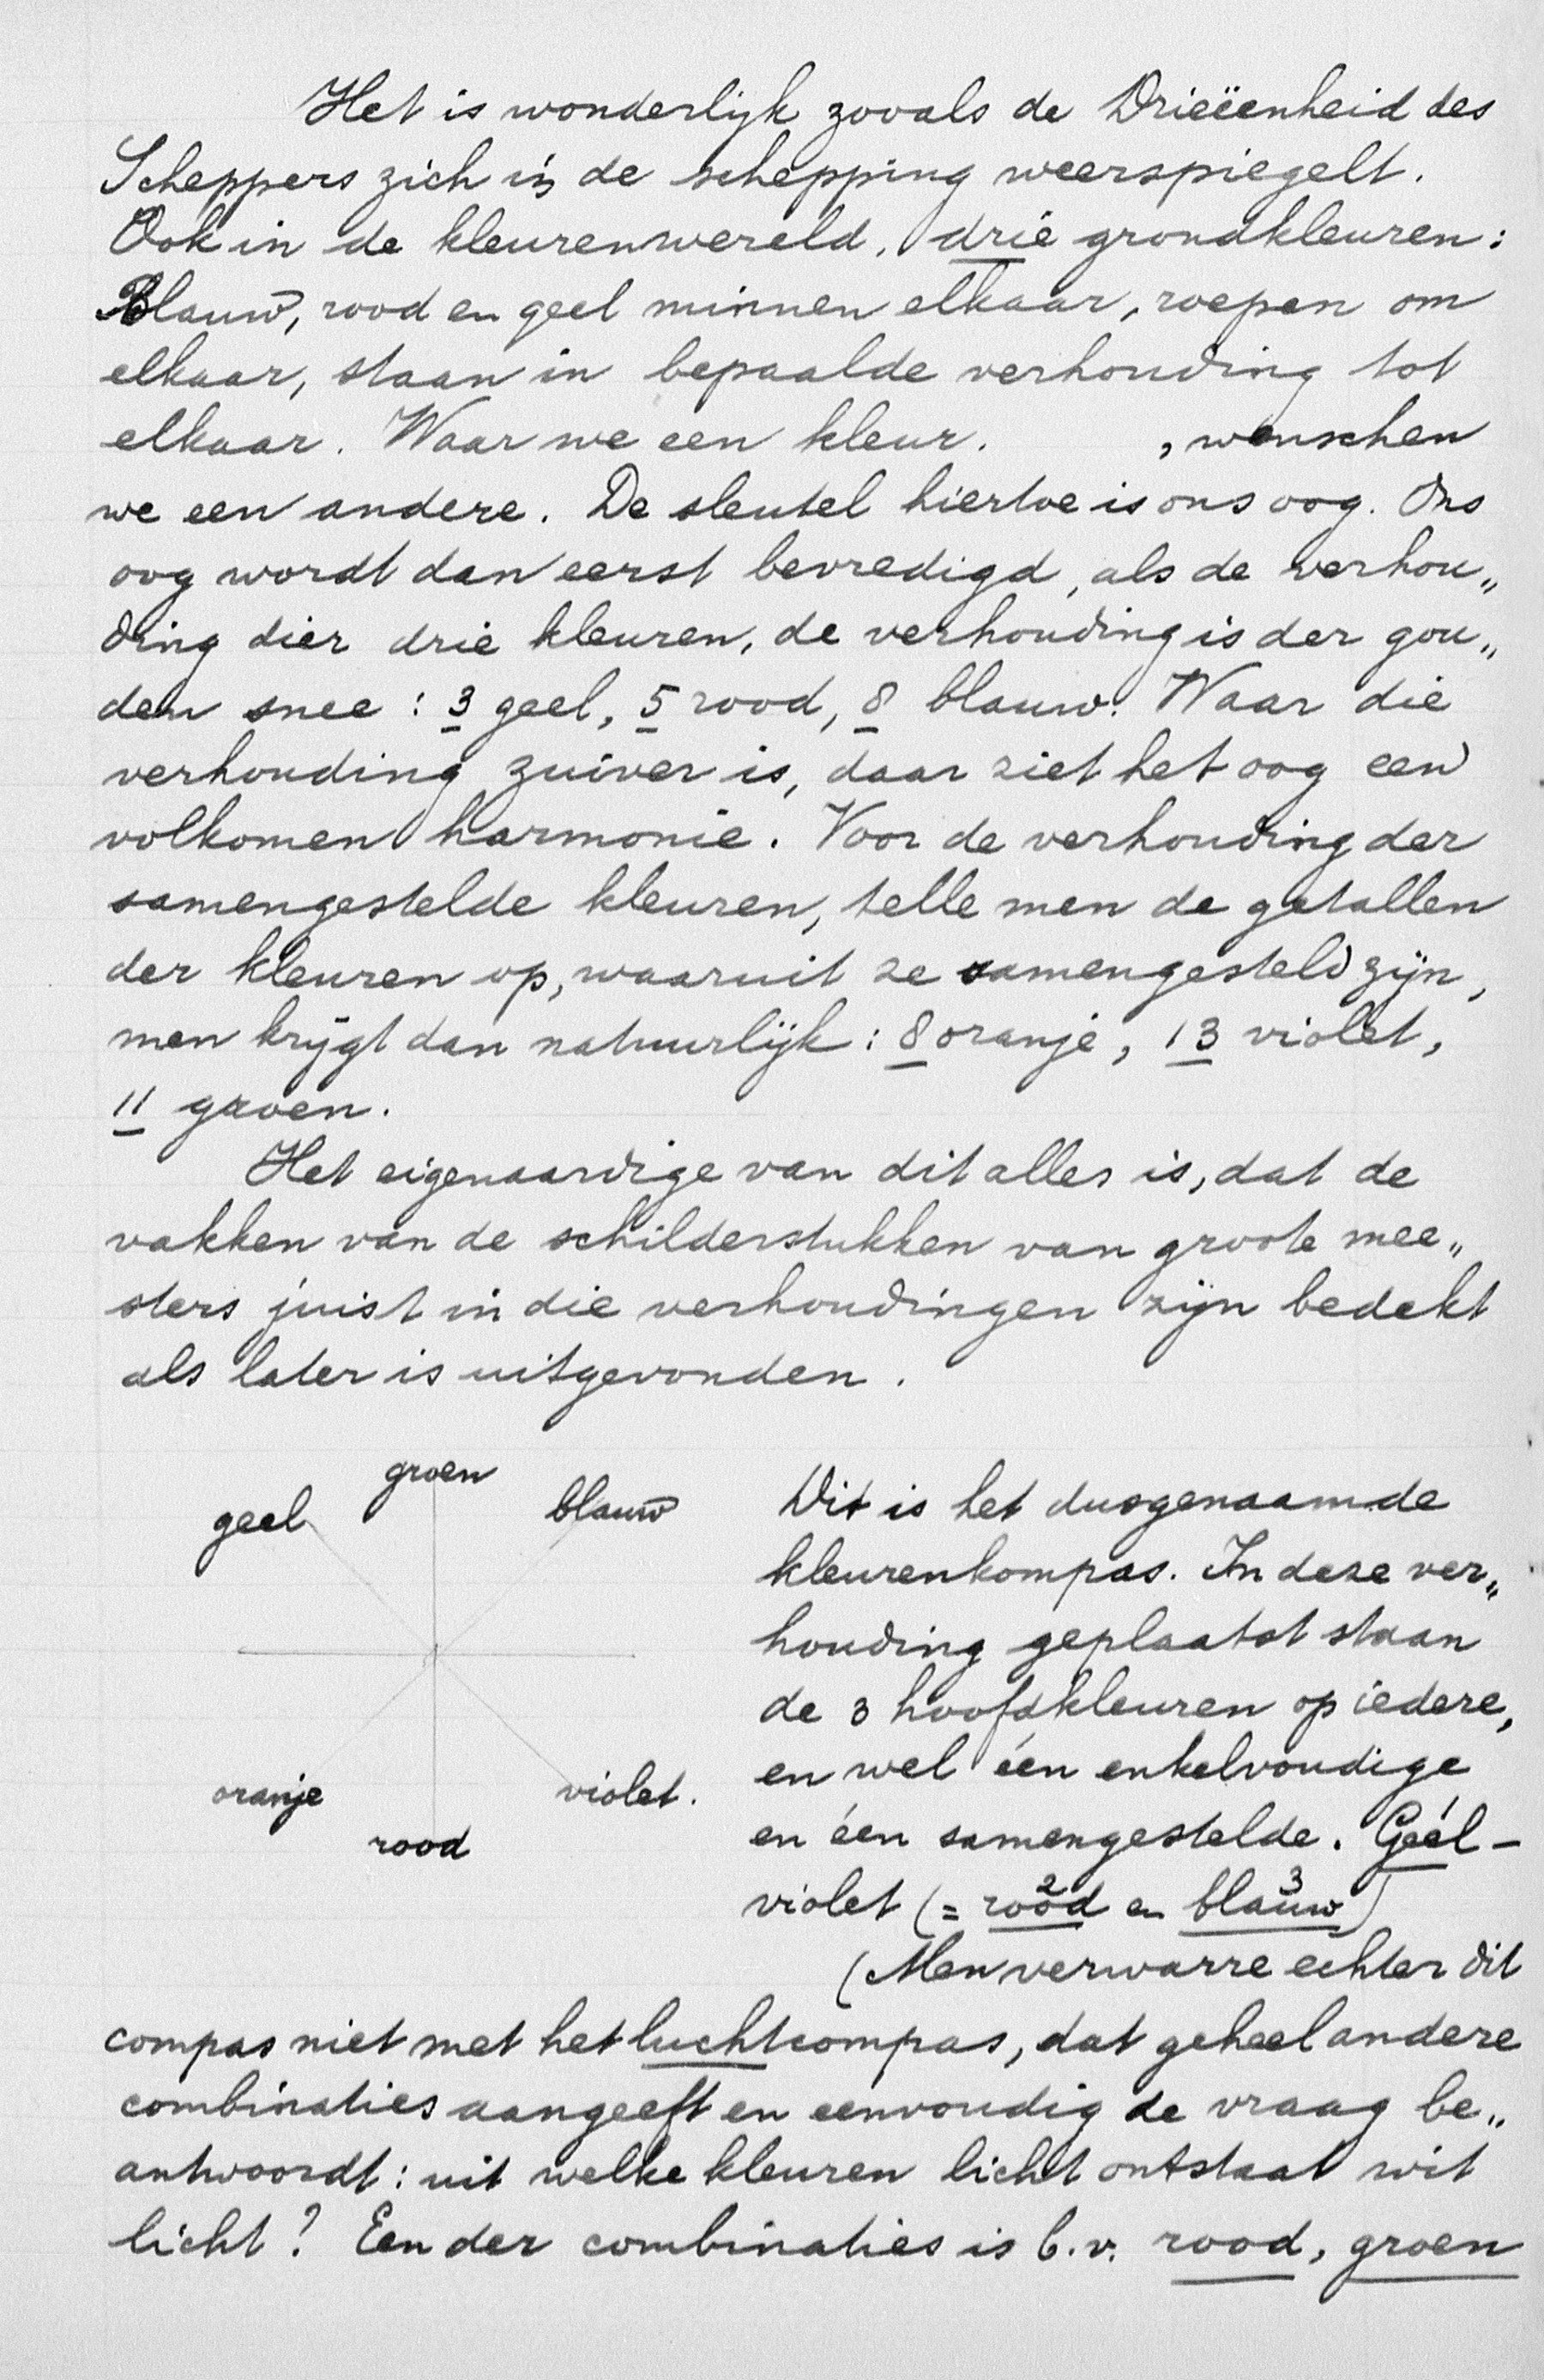 Het is wonderlijk zooals de Drieëenheid des
Scheppers zich in de schepping weerspiegelt.
Ook in de kleurenwereld, drie grondkleuren:
Blauw, rood en geel minnen elkaar, roepen om
elkaar, staan in bepaalde verhouding tot
elkaar. Waar we een kleur. , wenschen
we een andere. De sleutel hiertoe is ons oog. Ons
oog wordt dan eerst bevredigd, als de verhou„
ding dier drie kleuren, de verhouding is der gou„
den snee : 3 geel, 5 rood, 8 blauw. Waar die
verhouding zuiver is, daar ziet het oog een
volkomen harmonie. Voor de verhouding der
samengestelde kleuren, telle men de getallen
der kleuren op, waaruit ze samengesteld zijn,
men krijgt dan natuurlijk : 8 oranje, 13 violet,
11 groen.
Het eigenaardige van dit alles is, dat de
vakken van de schilderstukken van groote mee„
sters juist in die verhoudingen zijn bedekt
als later is uitgevonden.
groen
geel
blauw
oranje
violet.
rood
Dit is het dusgenaamde
kleurenkompas. In deze ver„
houding geplaatst staan
de 3 hoofdkleuren op iedere,
en wel één enkelvoudige
en één samengestelde. Geel 1 -
violet (= rood 2 en blauw 3)
(Men verwarre echter dit
compas niet met het luchtcompas, dat geheel andere
combinaties aangeeft en eenvoudig de vraag be„
antwoordt : uit welke kleuren licht ontstaat wit
licht? Een der combinaties is b.v. rood, groen